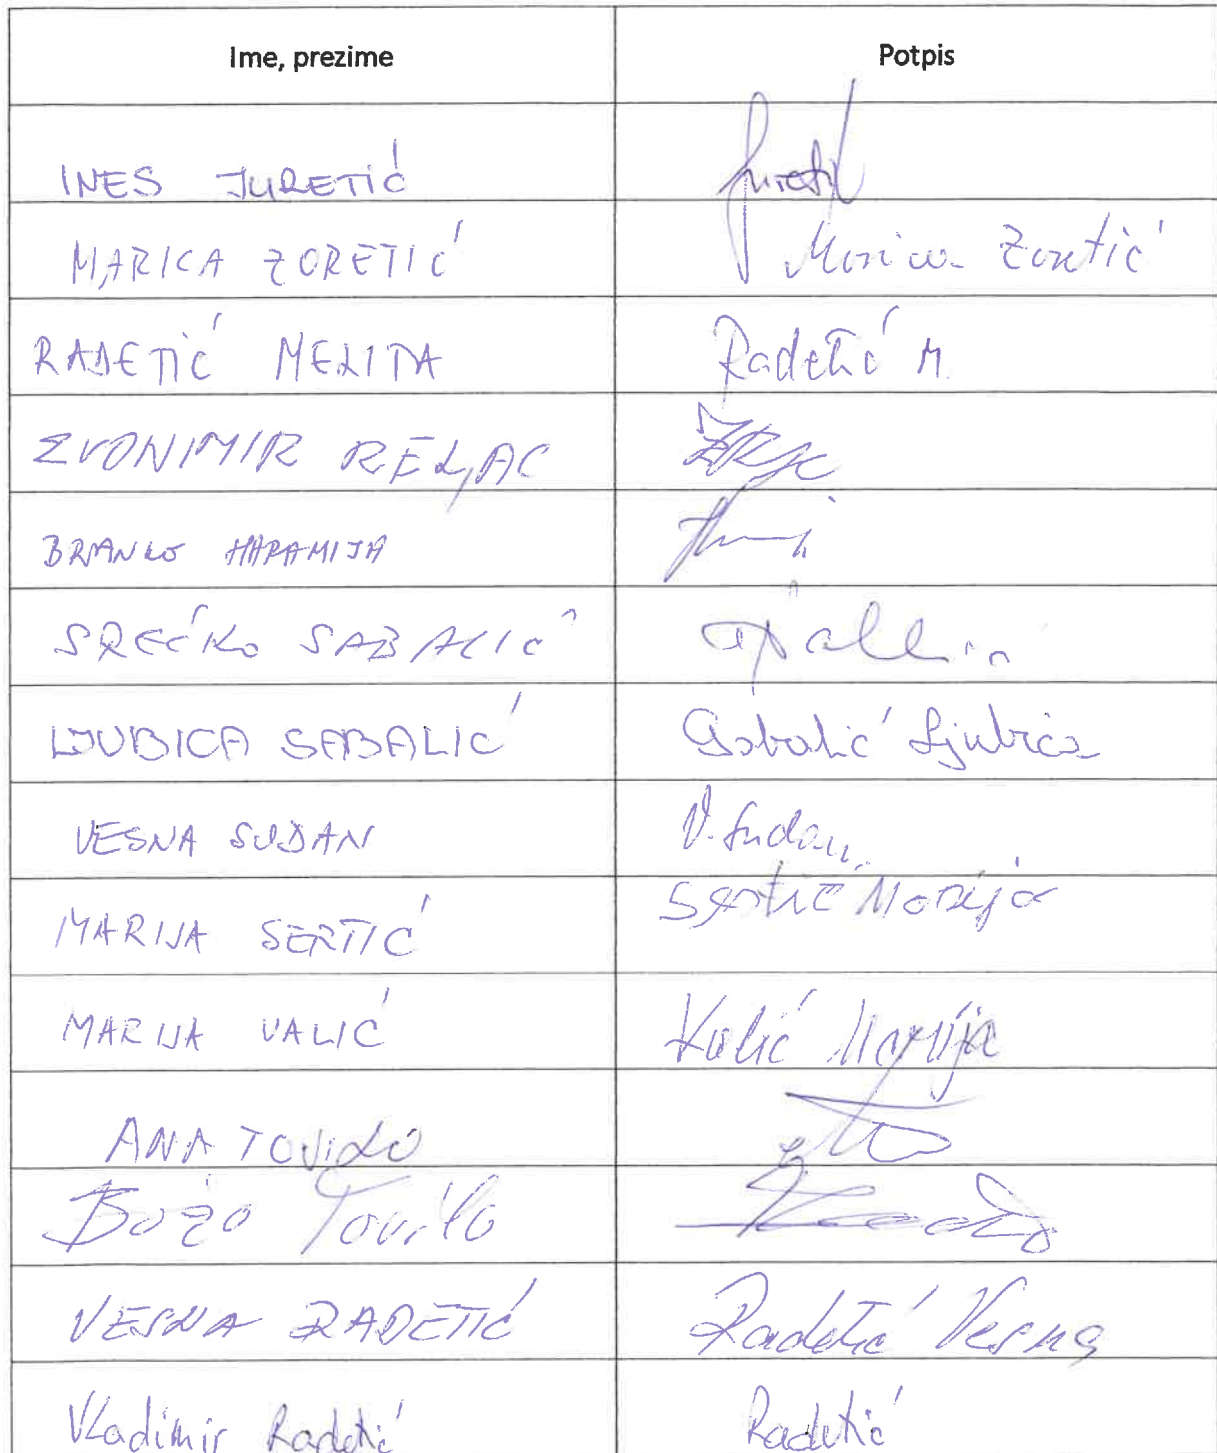 Ime, prezime Potpis
INES JURETIĆ Juretić
MARICA ZORETIĆ Marica Zoretić
RADETIĆ MELITA Radetić M.
ZVONIMIR RELJAC
BRANKO HARAMIJA
SREĆKO SABALIĆ
LJUBICA SABALIĆ Sabalić Ljubica
VESNA SUDAN V. Sudan
MARIJA SERTIĆ Sertić Marija
MARIJA VALIĆ Valić Marija
ANA TOVILO
Božo Tovilo
VESNA RADETIĆ Radetić Vesna
Vladimir Radetić Radetić